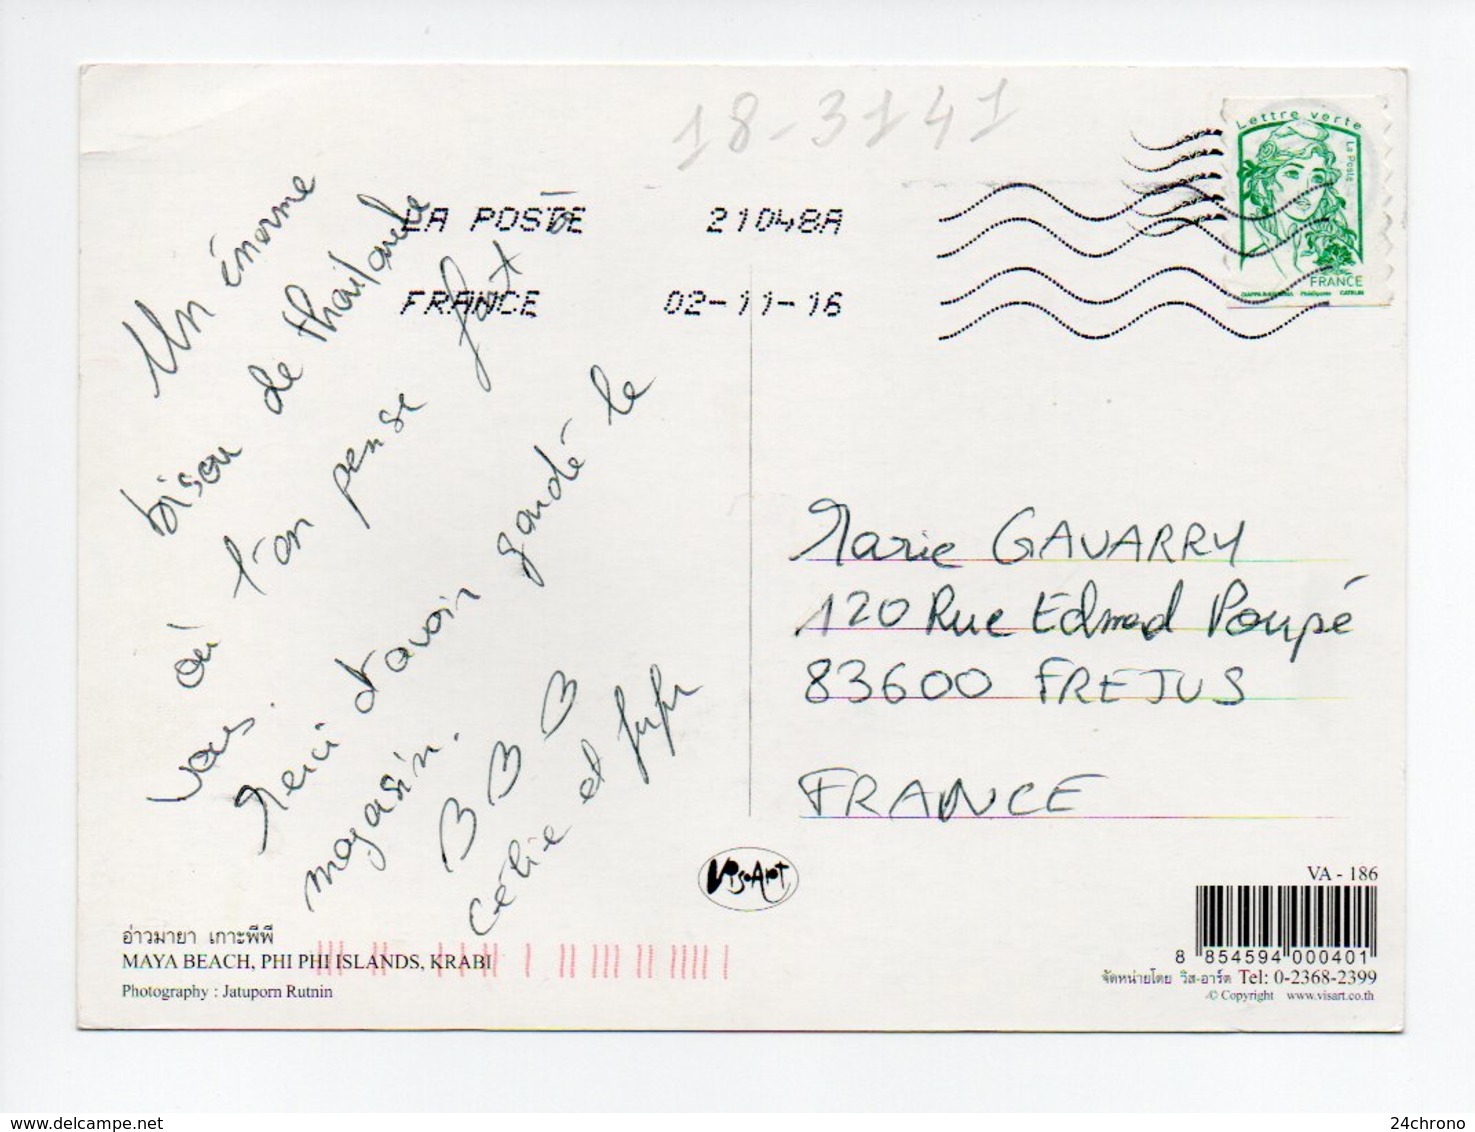 18-3141
Lettre verte
La Poste
FRANCE
LA POSTE 21048A
FRANCE 02-11-16
Un énorme
bisou de thailande
où l'on pense fort à
vous.
Merci d'avoir gardé le
magasin.
B B B
Célie et
Marie GAVARRY
120 Rue Edmond Poupé
83600 FREJUS
FRANCE
VisoArt
VA - 186
8 854594 000401
จัดหน่ายโดย วิส-อาร์ต Tel: 0-2368-2399
© Copyright www.visart.co.th
อ่าวมายา เกาะพีพี
MAYA BEACH, PHI PHI ISLANDS, KRABI
Photography : Jatuporn Rutnin
24chrono